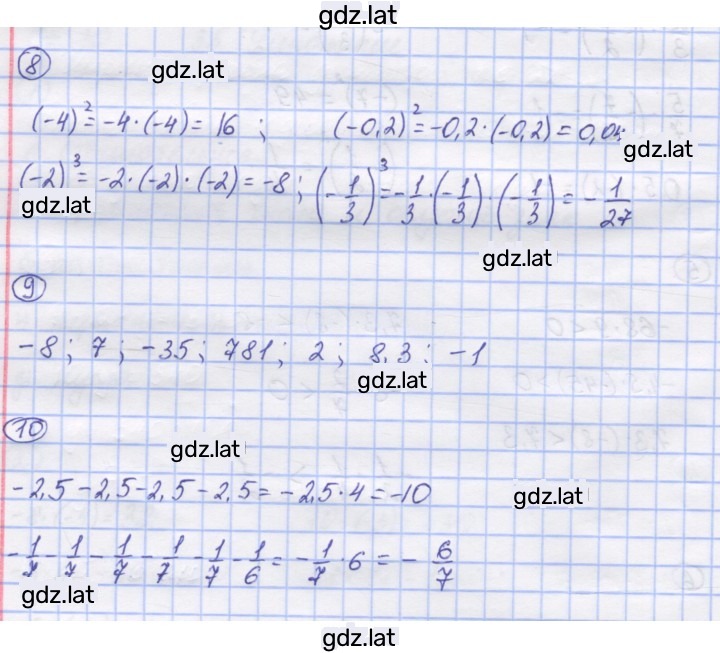 gdz.lat
8
gdz.lat
(-4)² = -4·(-4) = 16 ; (-0,2)² = -0,2·(-0,2) = 0,04;
gdz.lat
(-2)³ = -2·(-2)·(-2) = -8; (-1/3)³ = -1/3·(-1/3)·(-1/3) = -1/27
gdz.lat
gdz.lat
9
gdz.lat
-8; 7; -35; 781; 2; 8.3; -1
gdz.lat
10
gdz.lat
-2,5-2,5-2,5-2,5 = -2,5·4 = -10
gdz.lat
-1/7-1/7-1/7-1/7-1/7-1/6 = -1/7·6 = -6/7
gdz.lat
gdz.lat